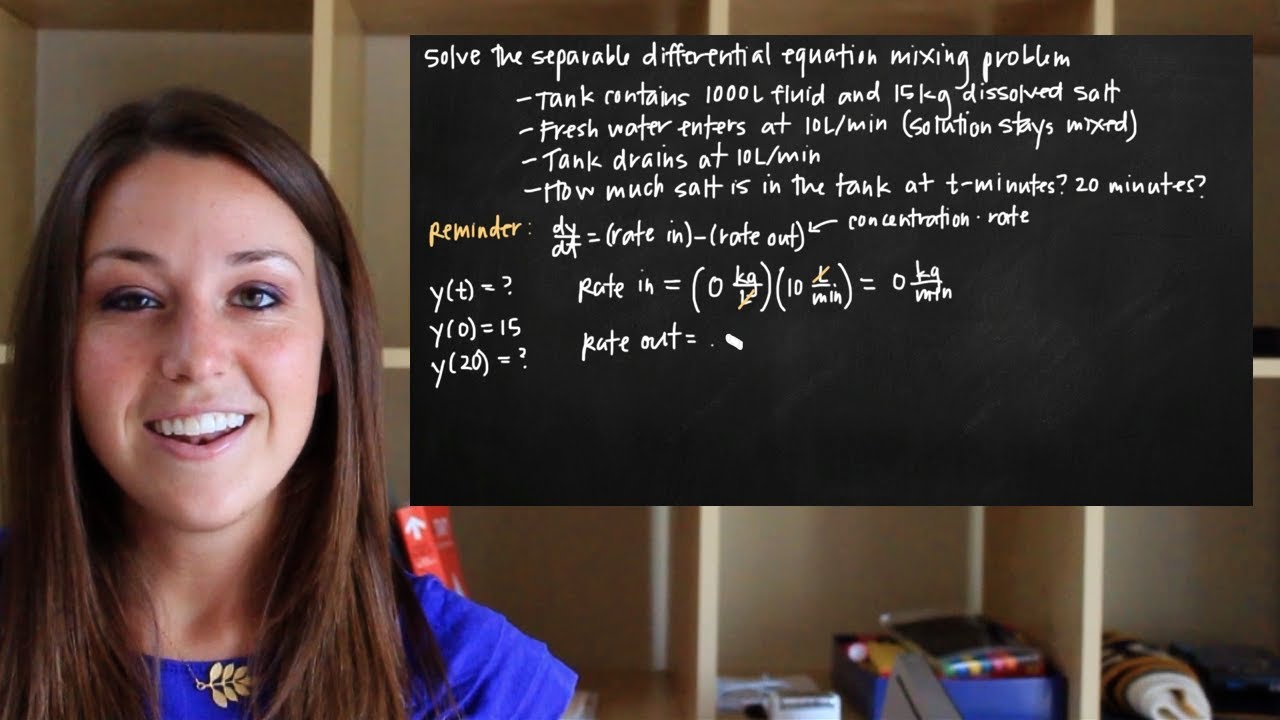 Solve the separable differential equation mixing problem
- Tank contains 1000L fluid and 15kg dissolved salt
- Fresh water enters at 10L/min (solution stays mixed)
- Tank drains at 10L/min
- How much salt is in the tank at t-minutes? 20 minutes?
Reminder: dy/dt = (rate in) - (rate out) ← concentration · rate
y(t) = ?
y(0) = 15
y(20) = ?
Rate in = (0 kg/L)(10 L/min) = 0 kg/min
Rate out = .